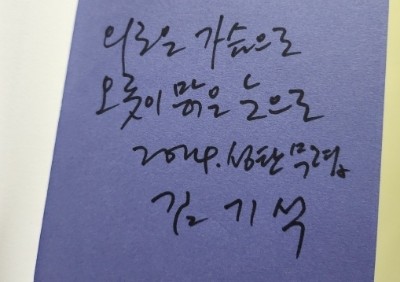 외로운 가슴으로
오롯이 맑은 눈으로
2024. 성탄 무렵
김기석